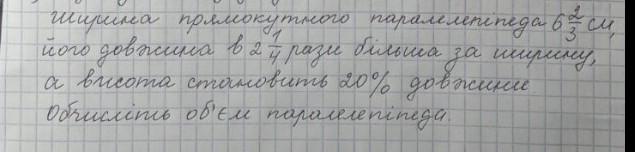 Ширина прямокутного паралелепіпеда 6 2/3 см,
його довжина в 2 1/4 рази більша за ширину,
а висота становить 20% довжини
Обчисліть об'єм паралелепіпеда.